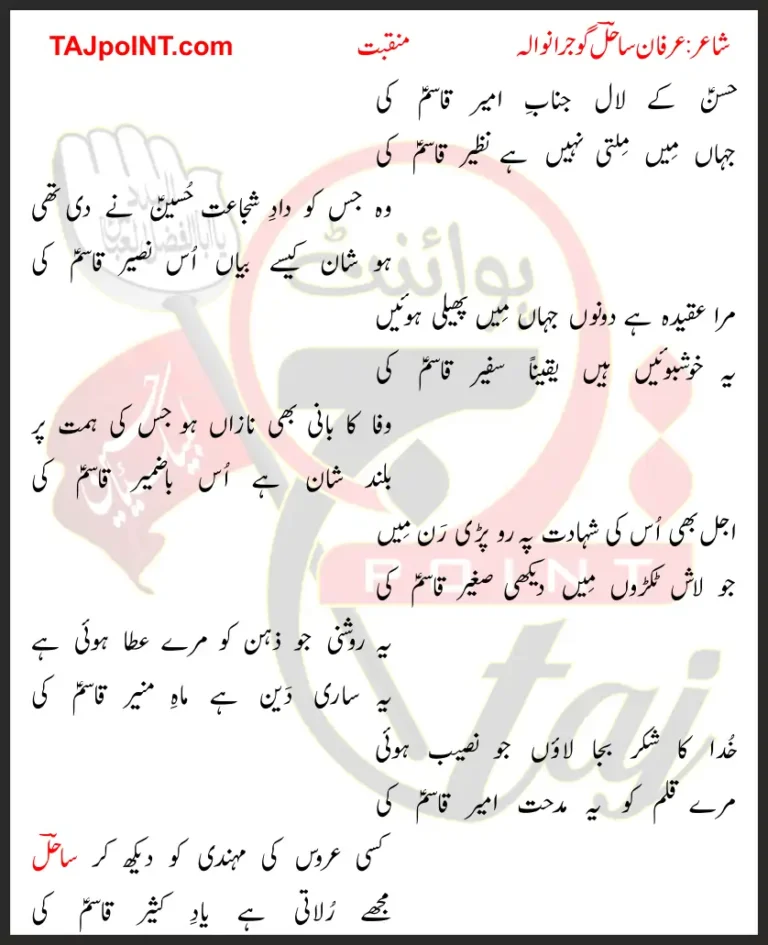 شاعر: عرفان ساحلؔ گوجرانوالہ منقبت TAJpoINT.com
حسنؑ کے لال جنابِ امیر قاسمؑ کی
جہاں مِیں مِلتی نہیں ہے نظیر قاسمؑ کی
وہ جس کو دادِ شجاعت حُسینؑ نے دی تھی
ہو شان کیسے بیاں اُس نصیر قاسمؑ کی
مرا عقیدہ ہے دونوں جہاں مِیں پھیلی ہوئیں
یہ خوشبوئیں ہیں یقیناً سفیر قاسمؑ کی
وفا کا بانی بھی نازاں ہو جس کی ہمت پر
بلند شان ہے اُس باضمیر قاسمؑ کی
اجل بھی اُس کی شہادت پہ رو پڑی رَن مِیں
جو لاش ٹکڑوں مِیں دیکھی صغیر قاسمؑ کی
یہ روشنی جو ذہن کو مرے عطا ہوئی ہے
یہ ساری دَین ہے ماہِ منیر قاسمؑ کی
خُدا کا شکر بجا لاؤں جو نصیب ہوئی
مرے قلم کو یہ مدحت امیر قاسمؑ کی
کسی عروس کی مہندی کو دیکھ کر ساحلؔ
مجھے رُلاتی ہے یادِ کثیر قاسمؑ کی
پوائنٹ
تاج
POINT
taj